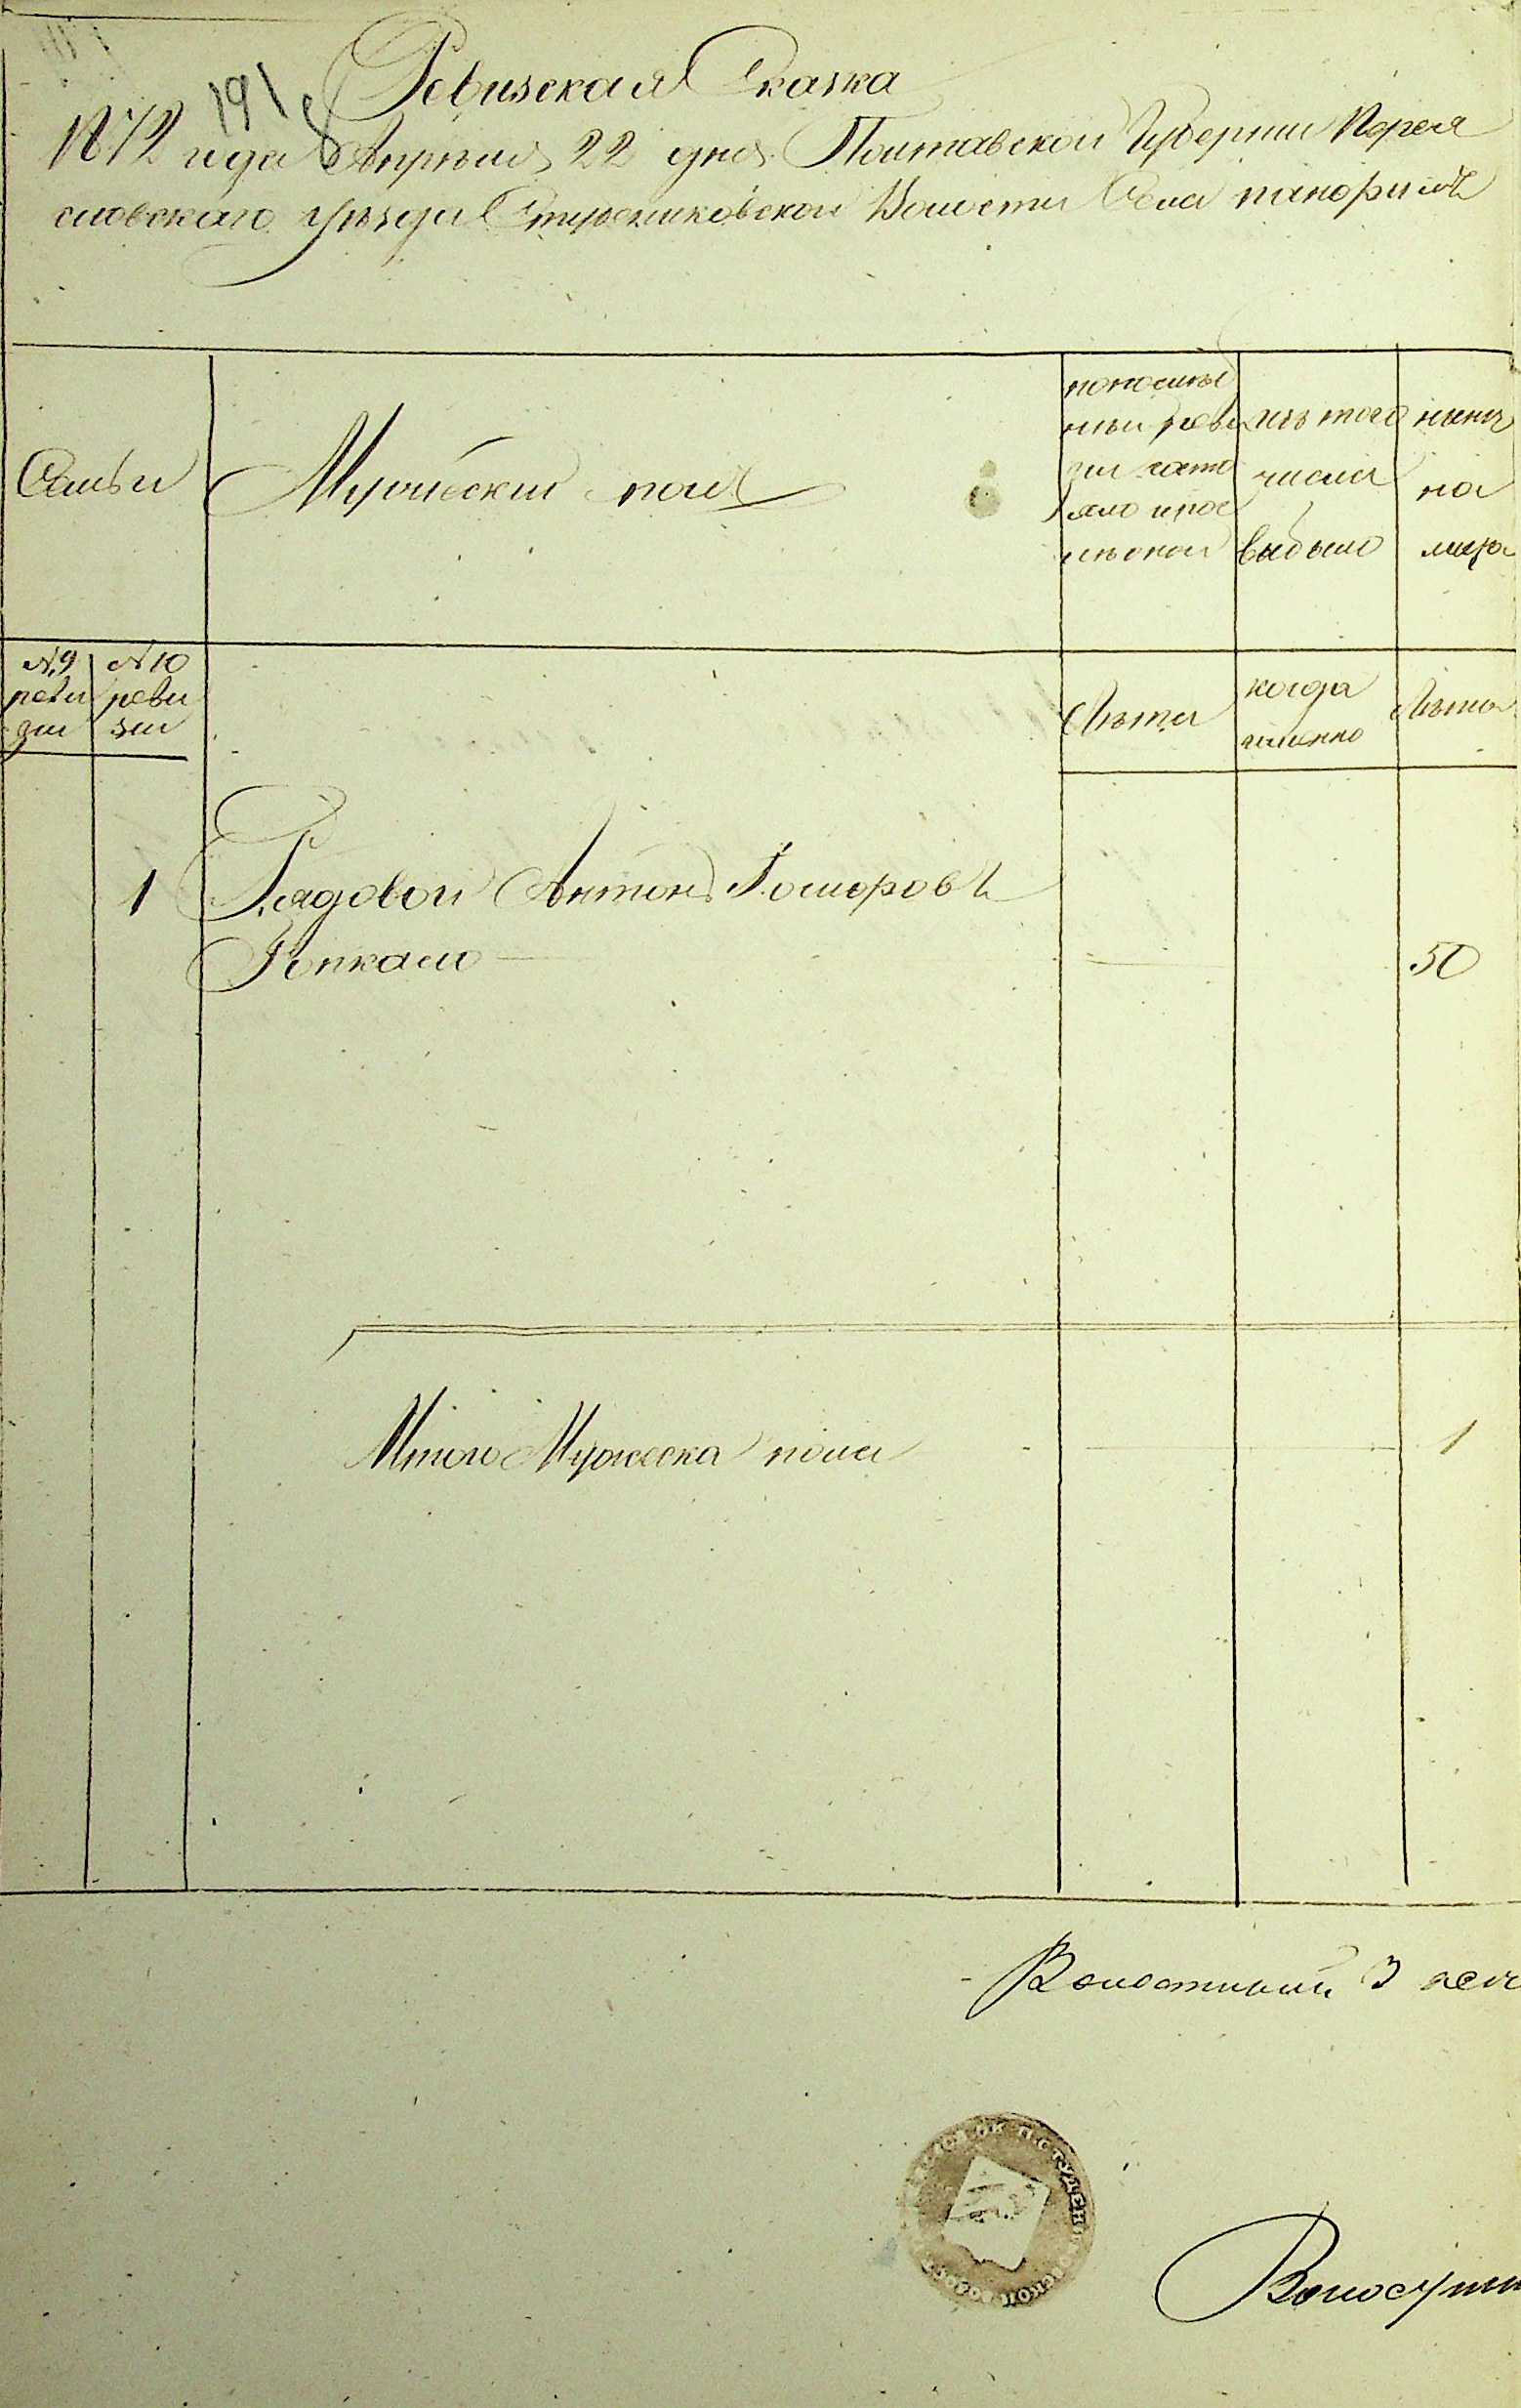 191
Ревизская Сказка
1872 года Апреля 22 дня Полтавской Губернии Перея
словскаго уезда Студениковской Волости Села
Семьи
Мужеский полъ
по последней реви
зии состо
яло и после
изъ того
числа
выбыло
ныне
на
лицо
№ 9
реви
зии
№ 10
реви
зии
Лета
когда
именно
Лета
1 Рядовой Антонъ
50
Итого Мужеска пола 1
Волостный